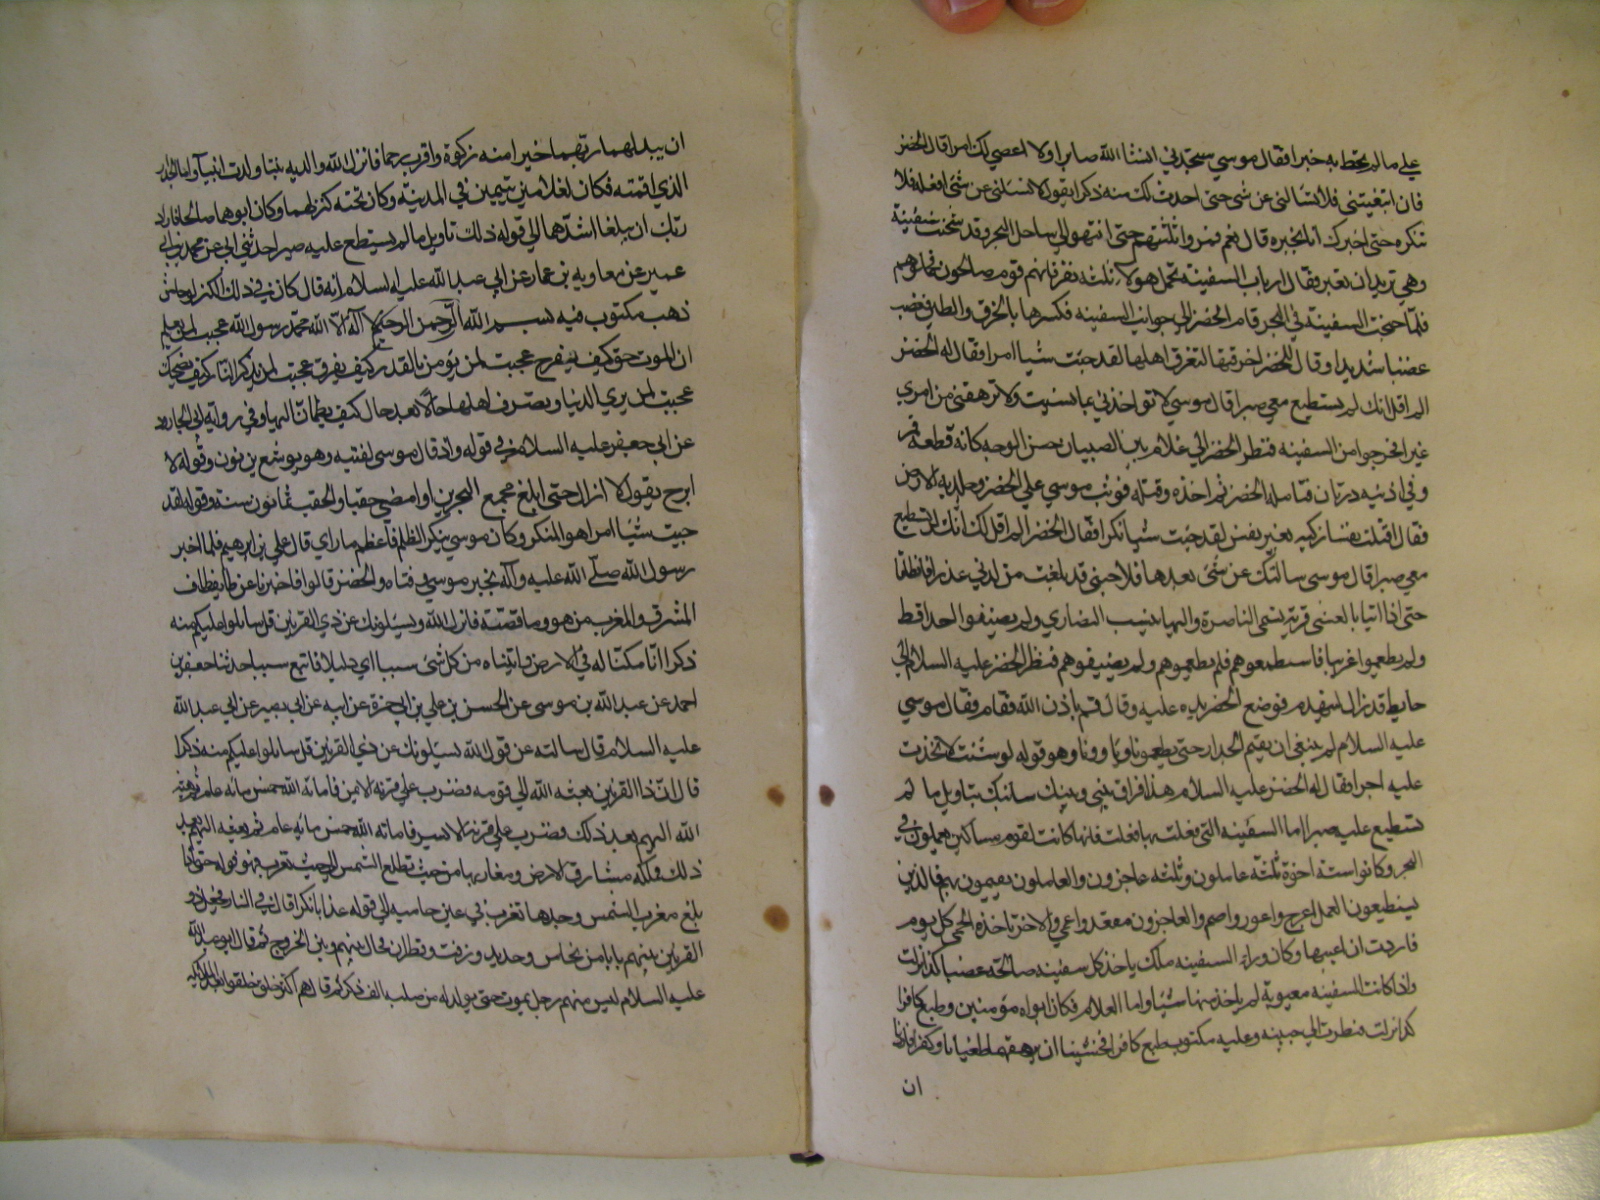 علي ما لم يحط به خبرا فقال موسي ستجدني انشا الله صابرا ولا اعصي لك امرا قال الخضر
فان اتبعتني فلا تسالني عن شي حتى احدث لك منه ذكرا يقول لا تسئلني عن شئ افعله فلا
تنكره حتى اخبرك انا بخبره قال نعم فمروا ثلثتهم حتى انتهوا الي ساحل البحر وقد شحنت سفينة
وهي تريد ان تعبر فقال ارباب السفينة نحمل هولاء ثلثة نفر فانهم قوم صالحون فحملوهم
فلما جنحت السفينة في البحر قام الخضر الي جوانب السفينه فكسرها بالخرق والطين فغضب
غضبا شديدا وقال للخضر اخرقتها لتغرق اهلها لقد جئت شيا امرا فقال له الخضر
الم اقل انك لم تستطيع معي صبرا قال موسي لا تواخذني بما نسيت ولا ترهقني من امري
عسرا فخرجوا من السفينه فنظر الخضر الي غلام يلعب بين الصبيان حسن الوجه كانه قطعة قمر
وفي اذنيه درتان فتامله الخضر ثم اخذه وقتله فوثب موسي علي الخضر وجلد به الارض
فقال اقتلت نفسا زكيه بغير نفس لقد جئت شيا نكرا فقال الخضر الم اقل لك انك لن تستطيع
معي صبرا قال موسى ان سالتك عن شئ بعدها فلا تصاحبني قد بلغت من لدني عذرا فانطلقا
حتى اذا اتيا بالعشى قرية تسمى الناصرة واليها ينسب النصاري ولم يضيفوا احدا قط
ولم يطعموا غريبا فاستطعموهم فلم يطعموهم ولم يضيفوهم فنظر الخضر عليه السلام الي
حايط قد زال لينهدم فوضع الخضر يده عليه وقال قم باذن الله فقام فقال موسي
عليه السلام لم ينبغ ان يقيم الجدار حتى يطعمونا ويأوونا وهو قوله لو شئت لاتخذت
عليه اجرا فقال له الخضر عليه السلام هذا فراق بيني وبينك سانبئك بتاويل ما لم
تستطيع عليه صبرا اما السفينه التي فعلت بها ما فعلت فانها كانت لقوم مساكين يعملون في
البحر وكانوا ستة اخوة ثلثة عاملون وثلثه عاجزون والعاملون يقيمون بهم فالذين
يستطيعون العمل اعرج واعور واصم والعاجزون مقعد واعمي والاخر تاخذه الحمي كل يوم
فاردت ان اعيبها وكان وراء السفينه ملك ياخذ كل سفينه صالحة غصبا كذا نزلت
واذا كانت السفينه معيوبة لم ياخذ منها شيا واما الغلام فكان ابواه مؤمنين وطبع كافرا
كذا نزلت فنظرت الي جبينه وعليه مكتوب طبع كافرا فخشينا ان يرهقهما طغيانا وكفرا فاردنا
ان
ان يبدلهما ربهما خيرا منه زكوة واقرب رحما فانزل الله والديه بنتا وولدت انبيآء واما الجدار
الذي اقمته فكان لغلامين يتيمين في المدينة وكان تحته كنز لهما وكان ابوهما صالحا فاراد
ربك ان يبلغا اشدهما الي قوله ذلك تاويل ما لم يستطع عليه صبرا حدثني ابي عن محمد بن ابي
عمير عن معاويه بن عمار عن ابي عبد الله عليه السلام انه قال كان في ذلك الكنز لوح من
ذهب مكتوب فيه بسم الله الرحمن الرحيم لا آله الا الله محمد رسول الله عجبت لمن يعلم
ان الموت حق كيف يفرح عجبت لمن يؤمن بالقدر كيف يفرق عجبت لمن يذكر النار كيف يضحك
عجبت لمن يري الدنيا وتصرف اهلها حالا بعد حال كيف يطمئن اليها وفي رواية ابي الجارود
عن ابي جعفر عليه السلام في قوله واذ قال موسى لفتيه وهو يوشع بن نون وقوله لا
ابرح يقول لا ازال حتى ابلغ مجمع البحرين او امضي حقبا والحقب ثمانون سنة وقوله لقد
جيت شيئا امرا هو المنكر وكان موسي ينكر الظلم فاعظم ما راي قال علي بن ابرهيم فلما اخبر
رسول الله صلّي الله عليه وآله بخبر موسى وفتاه والخضر قالوا فاخبرنا عن طايف طاف
المشرق والمغرب من هو وما قصّته فانزل الله ويسئلونك عن ذي القرنين قل ساتلوا عليكم منه
ذكرا انّا مكنّا له في الارض واتيناه من كل شئ سببا اي دليلا فاتبع سببا حدثنا جعفر بن
احمد عن عبد الله بن موسى عن الحسن بن علي بن ابي حمزة عن ابيه عن ابي بصير عن ابي عبد الله
عليه السلام قال سالته عن قول الله يسئلونك عن ذي القرنين قل ساتلوا عليكم منه ذكرا
قال ان ذا القرنين بعثه الله الي قومه فضرب علي قرنه الايمن فاماته الله خمس مائه عام ثم بعثه
الله اليهم بعد ذلك فضرب علي قرنه الايسر فاماته الله خمس مائه عام ثم بعثه اليهم بعد
ذلك وملكه مشارق الارض ومغاربها من حيث تطلع الشمس الي حيث تغرب فهو قوله حتى اذا
بلغ مغرب الشمس وجدها تغرب في عين حاميه الي قوله عذابا نكرا قال في النار فجعل ذو
القرنين بينهم بابا من نحاس وحديد وزفت وقطران فحال بينهم وبين الخروج ثم قال ابو عبد الله
عليه السلام ليس منهم رجل يموت حتى يولد له من صلبه الف ذكر ثم قال هم اكثر خلق خلقوا بعد الملائكه